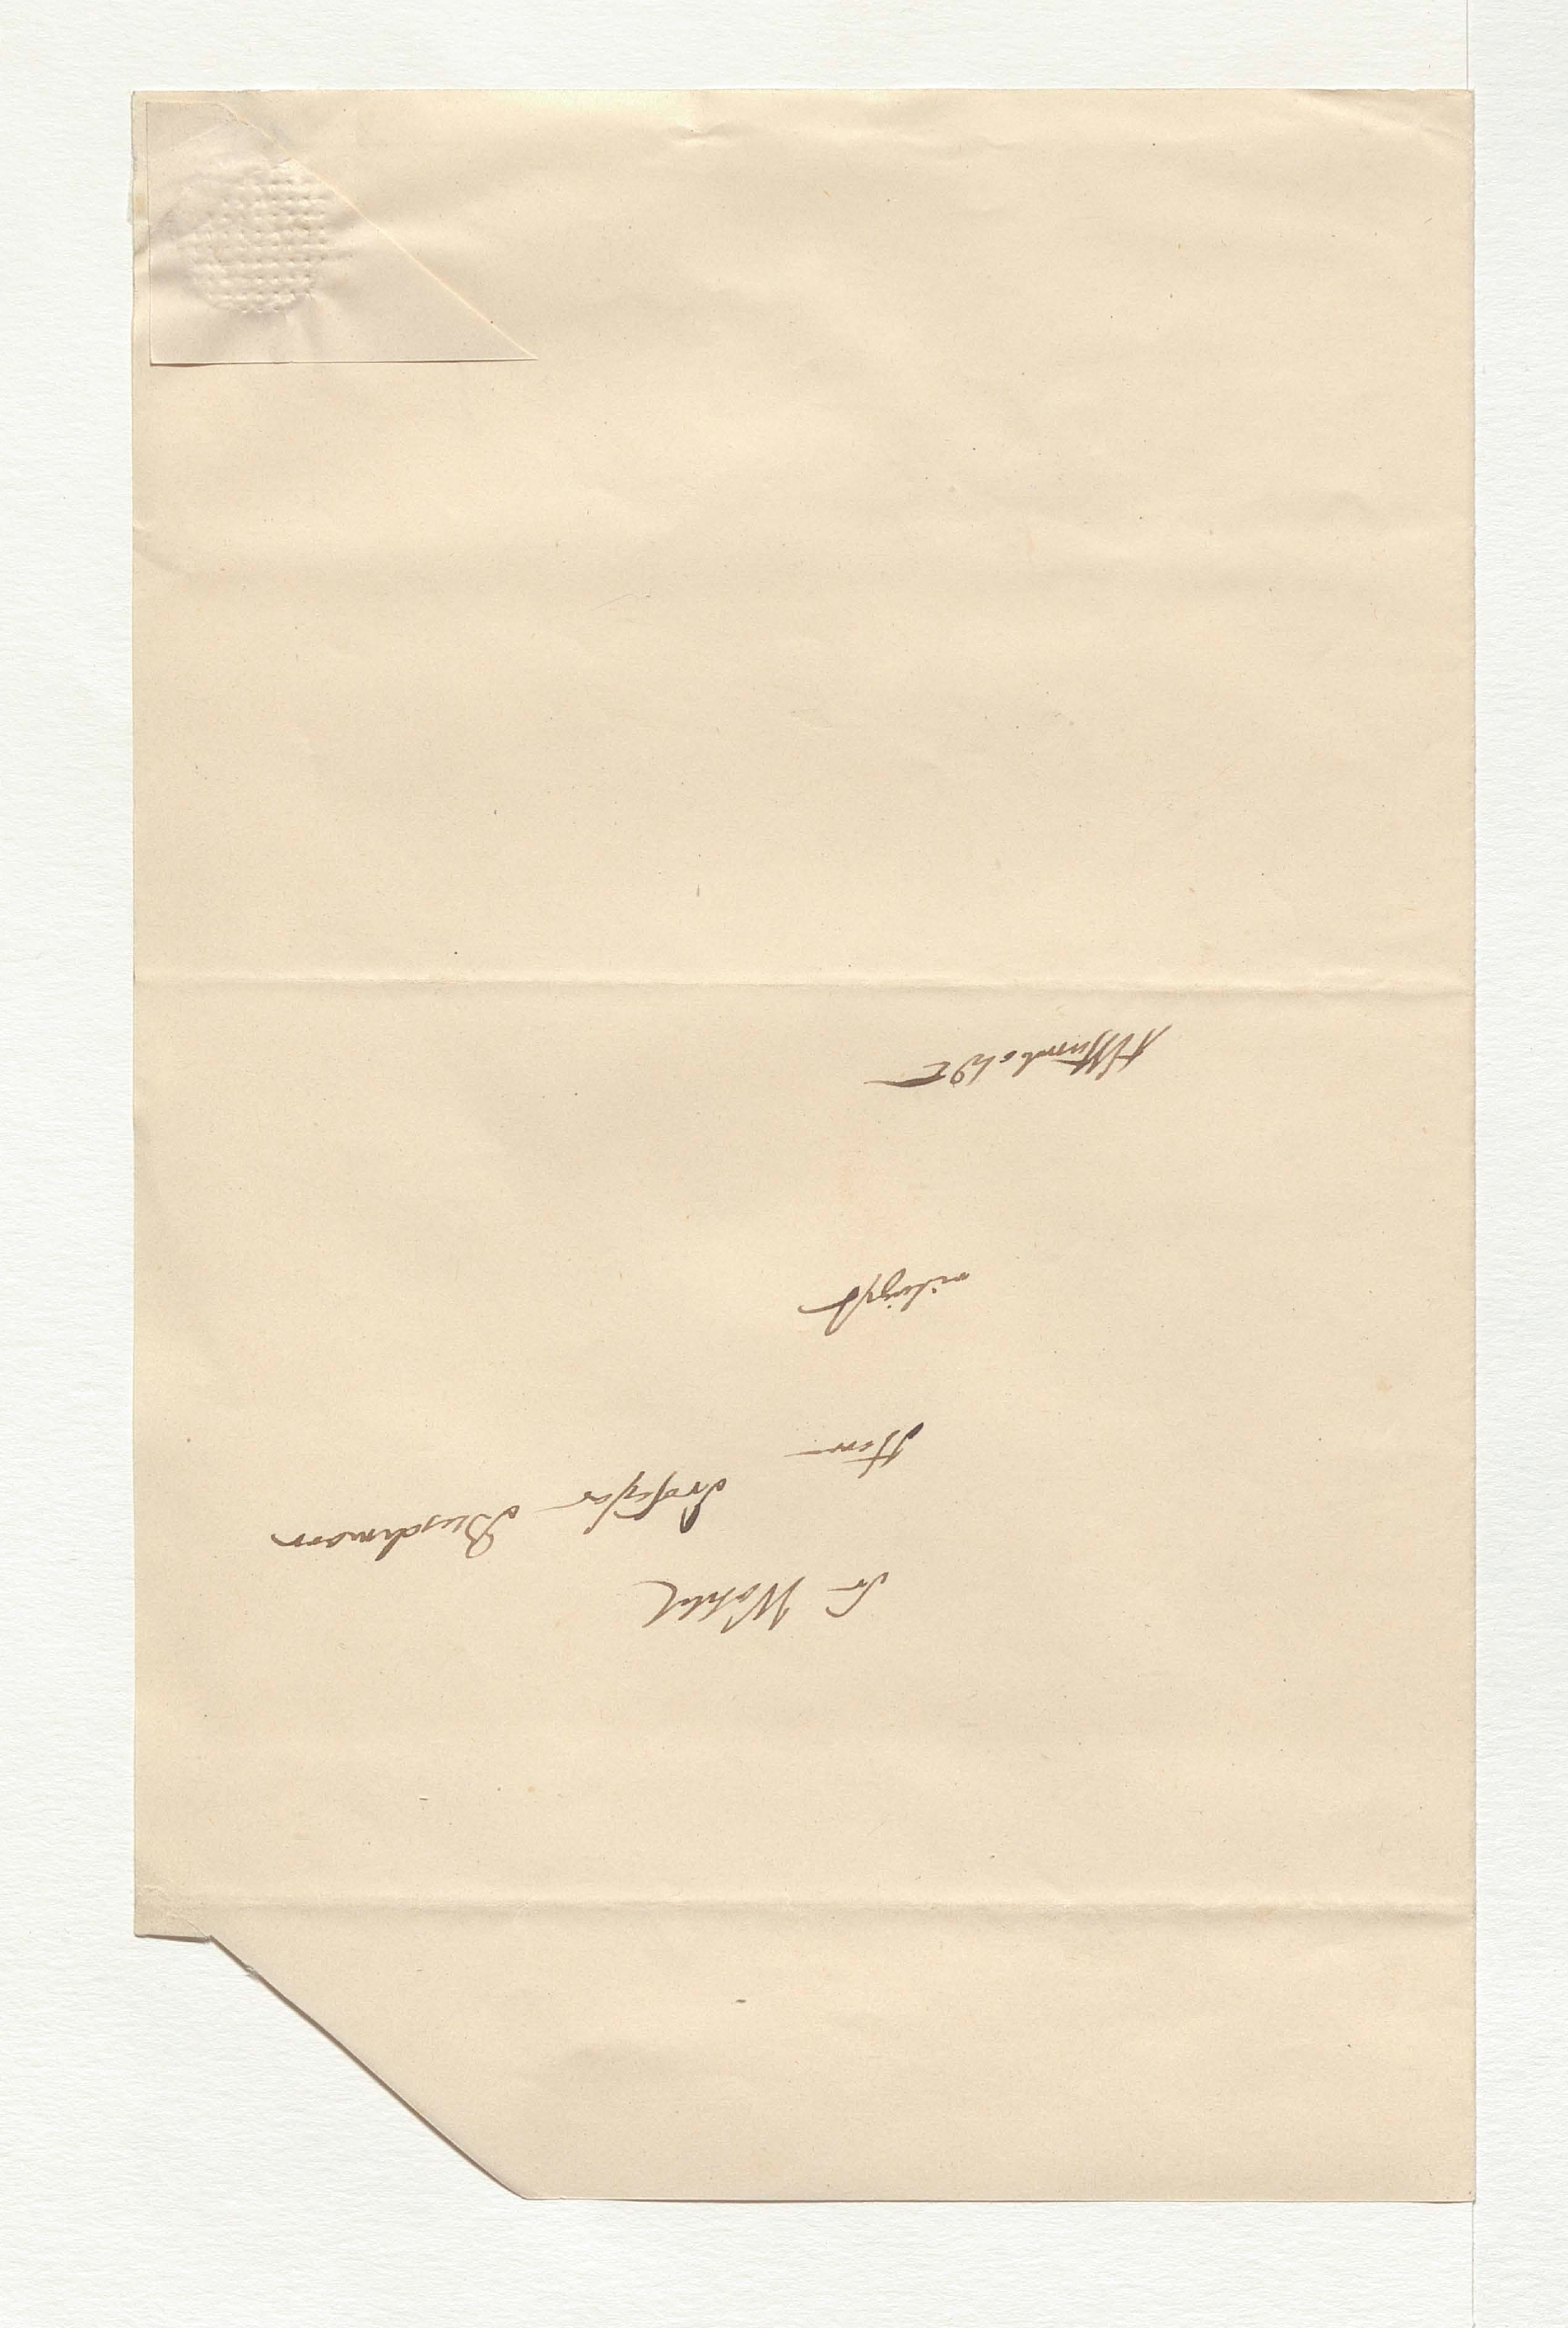 Sr Wohlgb
Herrn Professor Buschmann
eiligst
AvHumboldt